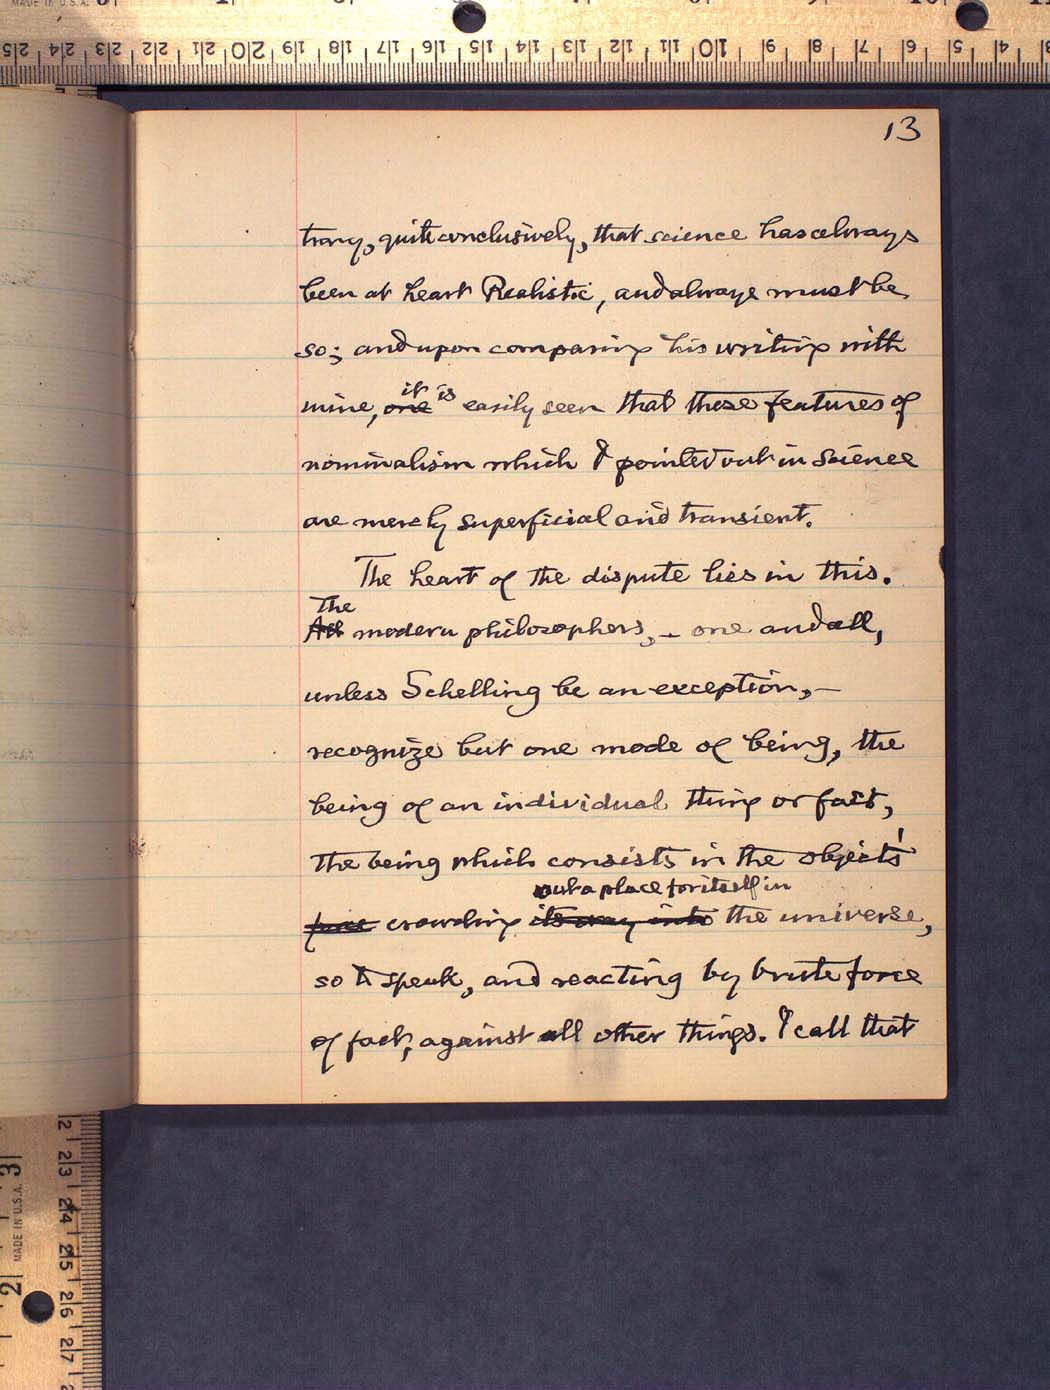 13
trary, quite conclusively, that science has always
been at heart Realistic, and always must be
so; and upon comparing his writing with
it is
mine, one easily seen that these features of
nominalism which I pointed out in science
are merely superficial and transient.
The heart of the dispute lies in this.
The
All modern philosophers, – one and all,
unless Schelling be an exception, –
recognize but one mode of being, the
being of an individual thing or fact,
the being which consists in the object's
out a place for itself in
force crowding its way into the universe,
so to speak, and reacting by brute force
of fact, against all other things. I call that
MADE IN U.S.A.
25 24 23 22 21 20 19 18 17 16 15 14 13 12 11 10 9 8 7 6 5 4 3
MADE IN U.S.A.
3
2
23
24
25
26
27